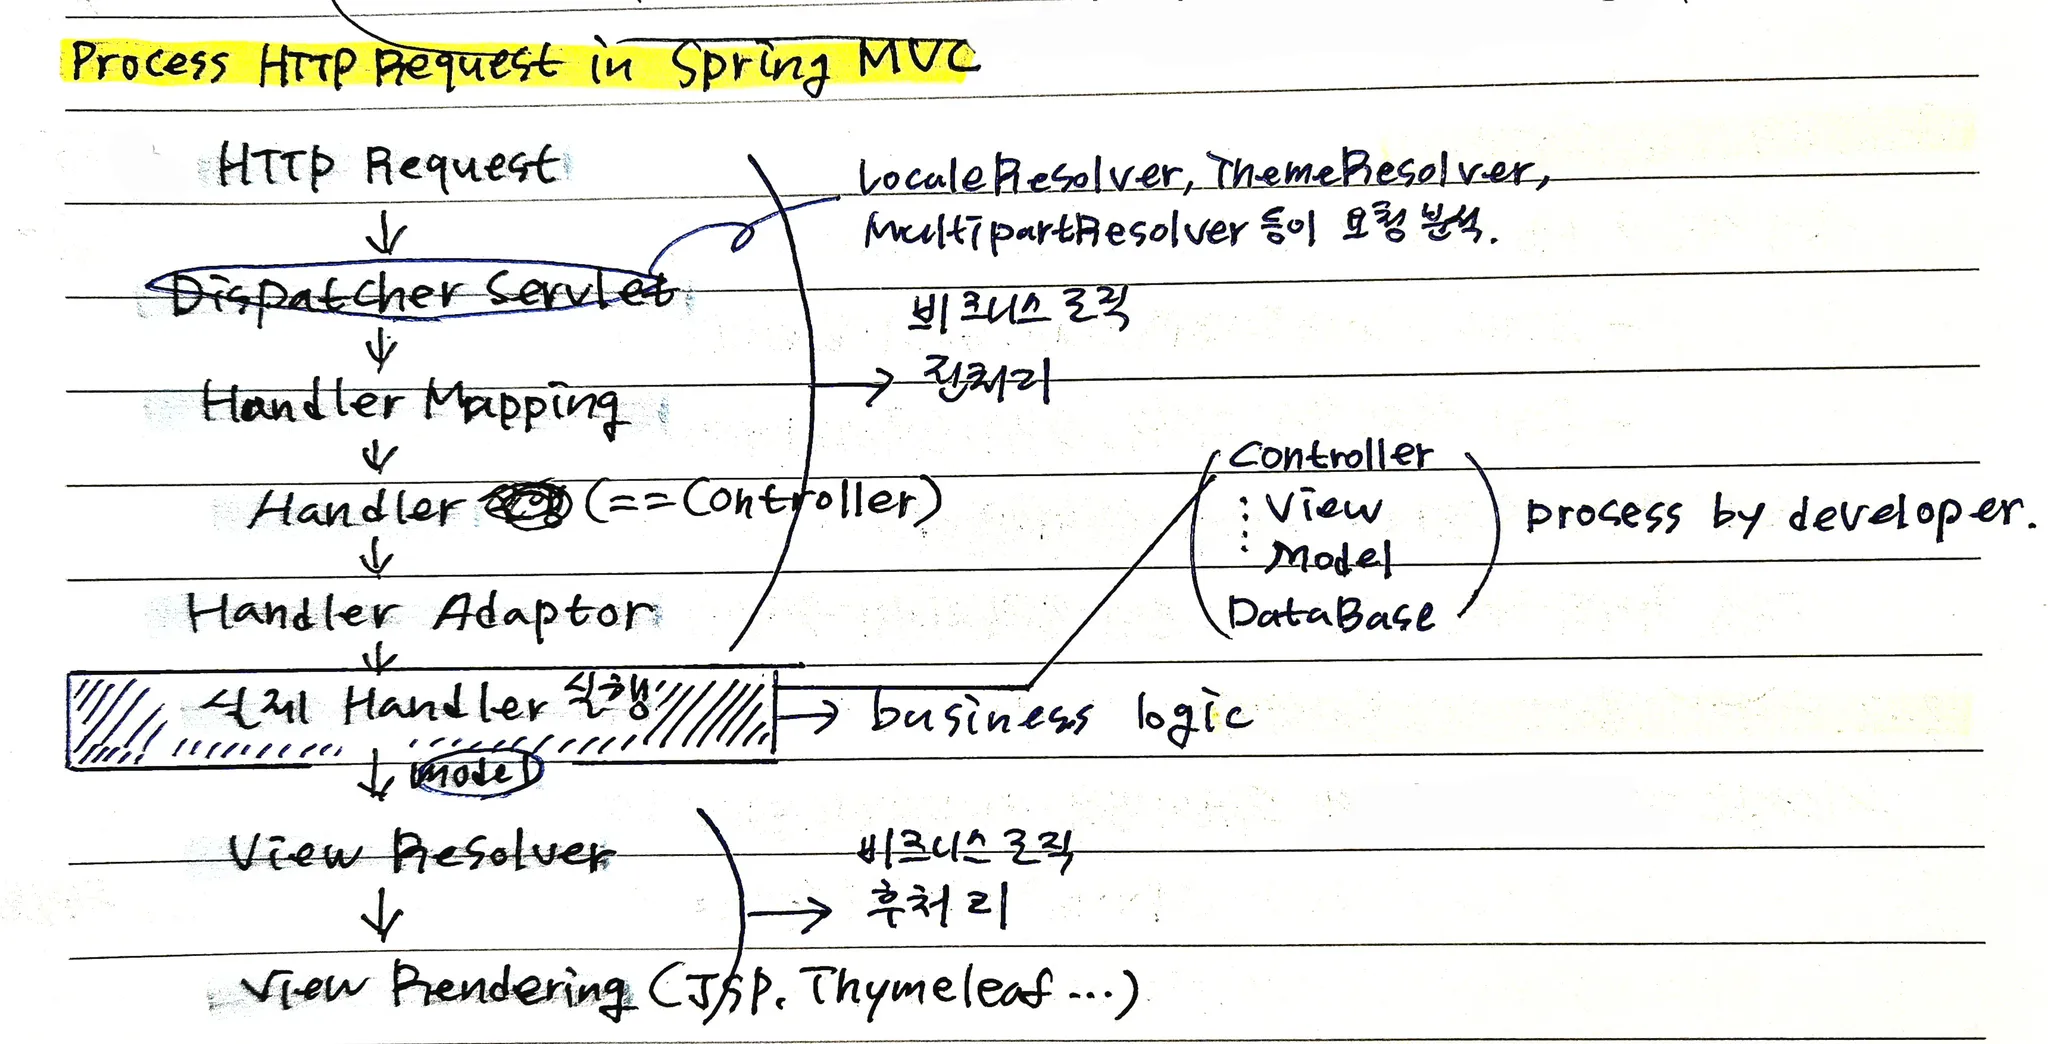 Process HTTP Request in Spring MVC
HTTP Request
↓
LocaleResolver, ThemeResolver,
MultipartResolver 등이 요청 분석.
Dispatcher Servlet
↓
비즈니스 로직
→ 전처리
Handler Mapping
↓
Handler (==Controller)
↓
Handler Adaptor
↓
Controller
View
Model
DataBase
process by developer.
실제 Handler 실행
→ business logic
↓ model
View Resolver
↓
비즈니스 로직
→ 후처리
View Rendering (JSP, Thymeleaf ...)